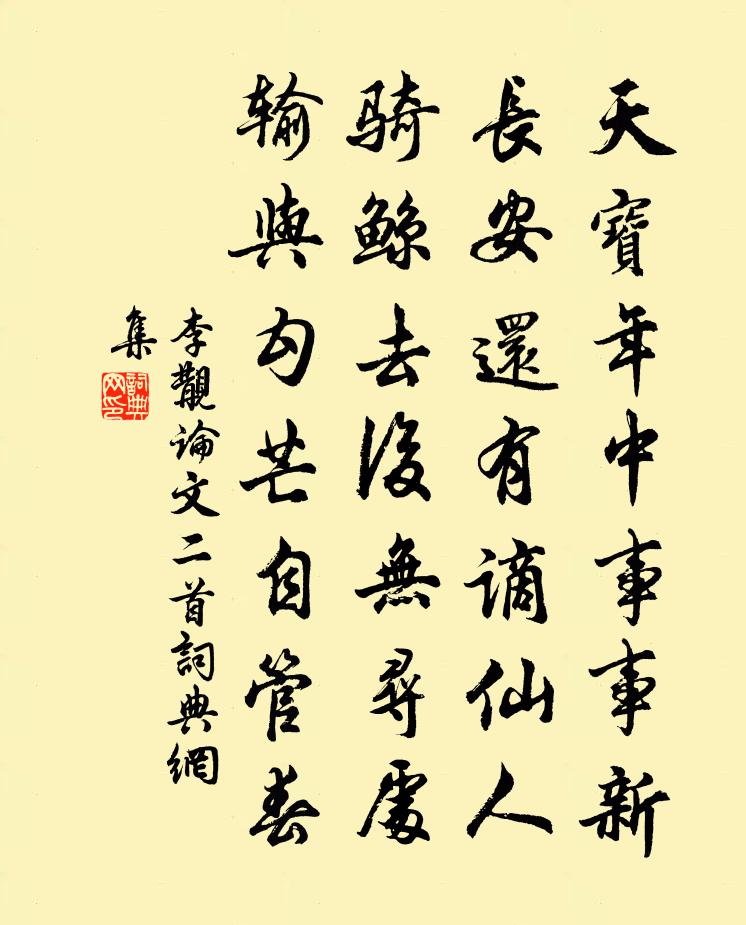 天寶年中事事新
長安還有謫仙人
騎鯨去後無尋處
輸與勾芒自管春
李覯論文二首詞典網
集
詞典
网印